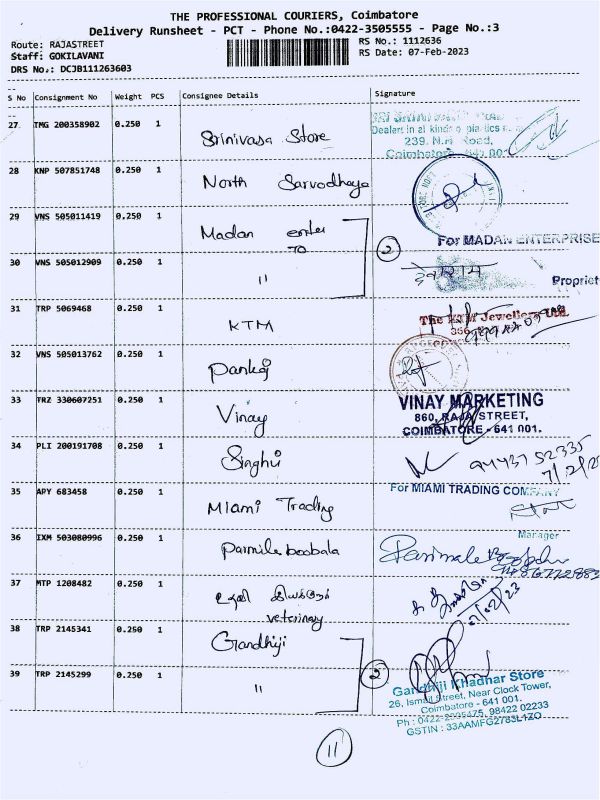 THE PROFESSIONAL COURIERS, Coimbatore
Delivery Runsheet - PCT - Phone No.:0422-3505555 - Page No.:3
Route: RAJASTREET
RS No.: 1112636
Staff: GOKILAVANI
RS Date: 07-Feb-2023
DRS No.: DCJB111263603
S No Consignment No Weight PCS Consignee Details Signature
27 TMG 200358902 0.250 1 Srinivasa Store
Dealers in all kinds
239, N.H. Road,
Coimbatore - 641 001
28 KNP 507851748 0.250 1 North Sarvodhaya
29 VNS 505011419 0.250 1 Madan enter
TO
2
For MADAN ENTERPRISE
30 VNS 505012909 0.250 1 "
Propriet
31 TRP 5069468 0.250 1 KTM
The KTM Jewellery Ltd.
32 VNS 505013762 0.250 1 Pankaj
33 TRZ 330607251 0.250 1 Vinay
VINAY MARKETING
860, RAJA STREET,
COIMBATORE - 641 001.
34 PLI 200191708 0.250 1 Singhvi
94437 52335
35 APY 683458 0.250 1 Miami Trading
For MIAMI TRADING COMPANY
Manager
36 IXM 503080996 0.250 1 Parmileboobala
37 MTP 1208482 0.250 1 உதவி இயக்குநர்
veterinary
07/02/23
38 TRP 2145341 0.250 1 Gandhiji
39 TRP 2145299 0.250 1 "
2
Gandhiji Khadhar Store
26, Ismail Street, Near Clock Tower,
Coimbatore - 641 001.
Ph : 0422-2395475, 98422 02233
GSTIN : 33AAMFG2783L1ZO
11